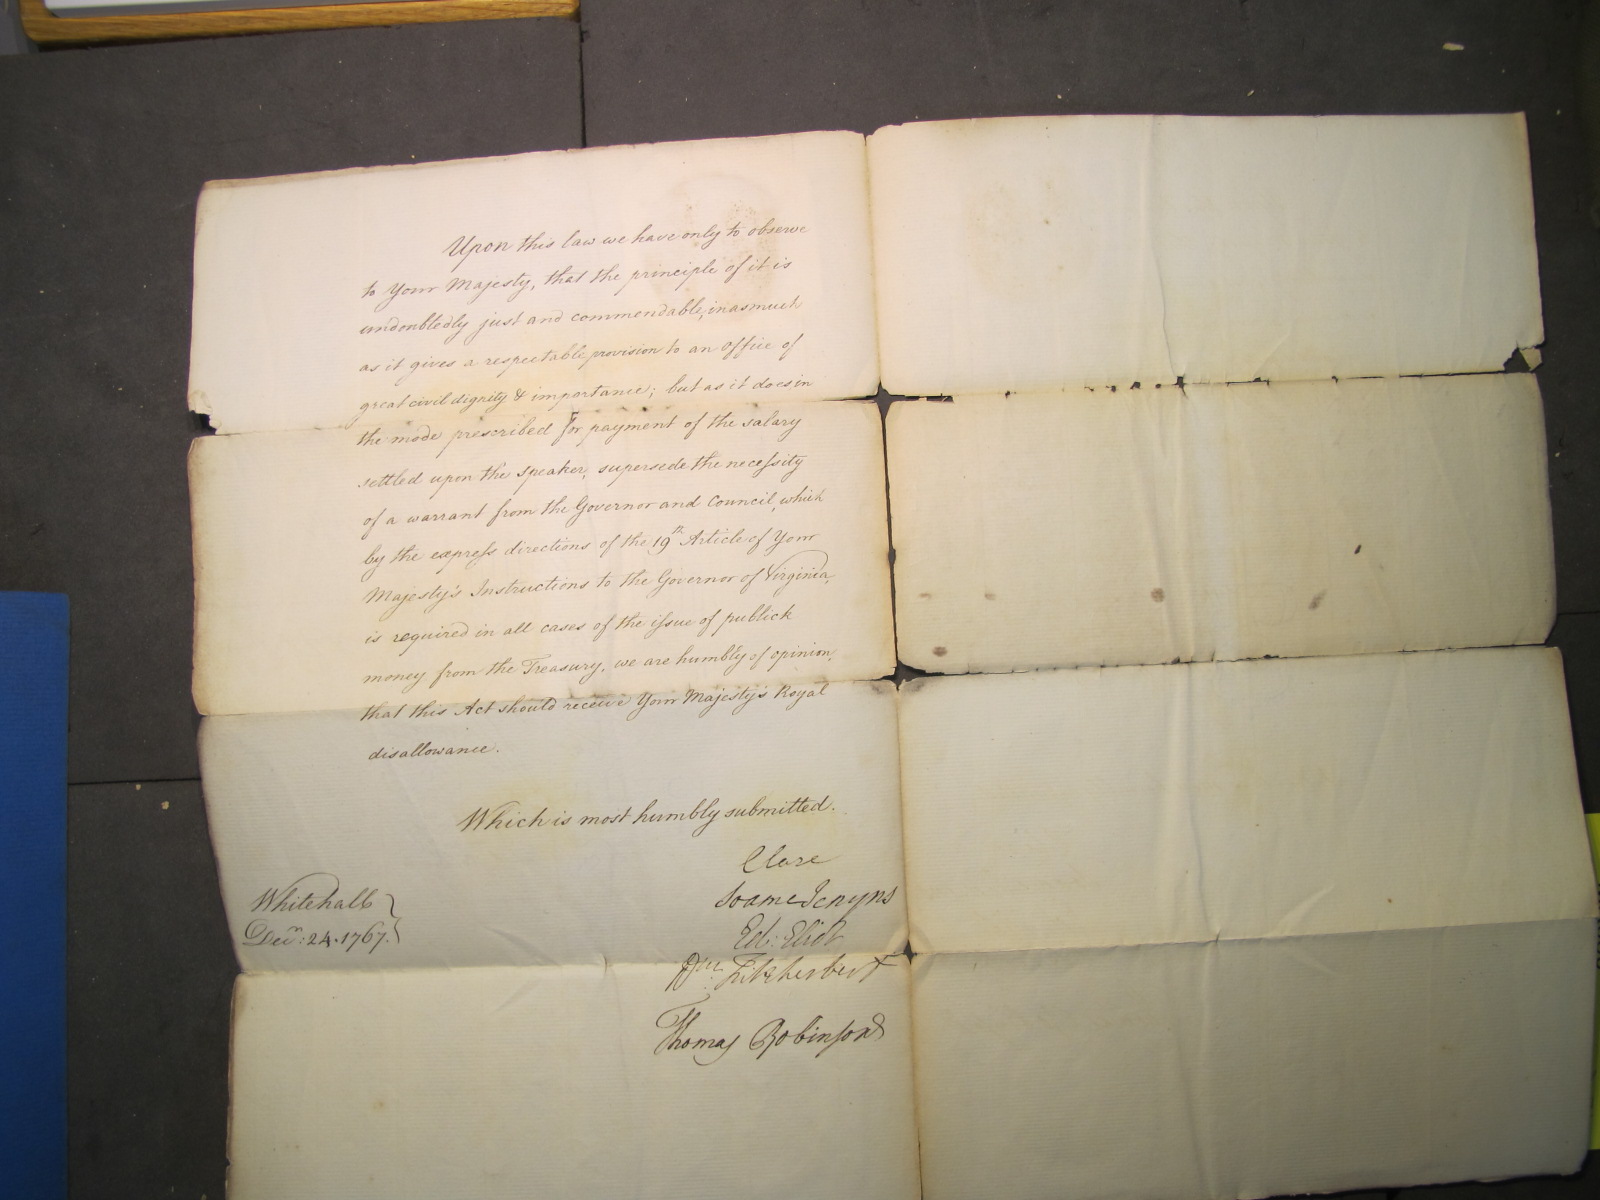 Upon this law we have only to observe
to Your Majesty, that the principle of it is
undoubtedly just and commendable, inasmuch
as it gives a respectable provision to an Office of
great civil dignity & importance; but as it does in
the mode prescribed for payment of the salary
settled upon the Speaker, supersede the necessity
of a warrant from the Governor and Council, which
by the express directions of the 19th Article of Your
Majesty's Instructions to the Governor of Virginia,
is required in all cases of the issue of publick
money from the Treasury, we are humbly of opinion,
that this Act should receive Your Majesty's Royal
disallowance.
Which is most humbly submitted.
Clare
Soame Jenyns
Ed: Eliot
Wm Fitzherbert
Thomas Robinson
Whitehall
Decr: 24. 1767.